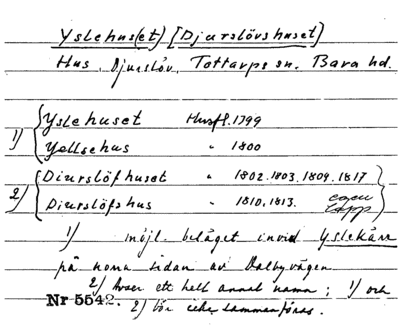 Yslehus(et) [Djurslövshuset]
Hus, Djurslöv, Tottarps sn. Bara hd.
1) Yslehuset Husfl. 1799
Yellsehus " 1800
2) Diurslöfhuset " 1802. 1803. 1809. 1817
Diurslöfs hus " 1810. 1813.
1) möjl. beläget invid Yslekärr
på norra sidan av Dalbyvägen
2) avser ett helt annat namn; 1) och
Nr 5542. 2) bör icke sammanföras.